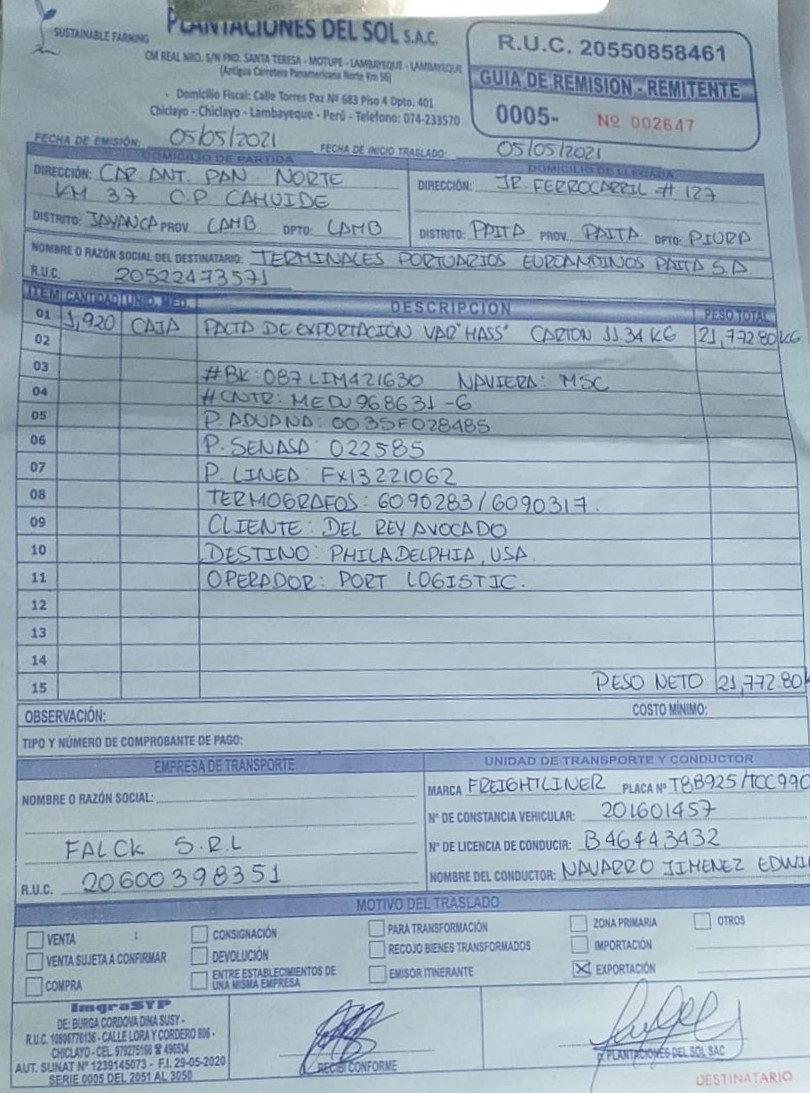 SUSTAINABLE FARMING
PLANTACIONES DEL SOL S.A.C.
CM REAL NRO. S/N FND. SANTA TERESA - MOTUPE - LAMBAYEQUE - LAMBAYEQUE
(Antigua Carretera Panamericana Norte Km 56)
Domicilio Fiscal: Calle Torres Paz Nº 683 Piso 4 Dpto. 401
Chiclayo - Chiclayo - Lambayeque - Perú - Telefono: 074-233570
R.U.C. 20550858461
GUIA DE REMISION - REMITENTE
0005- Nº 002647
FECHA DE EMISIÓN: 05/05/2021 FECHA DE INICIO TRASLADO: 05/05/2021
DOMICILIO DE PARTIDA
DIRECCIÓN: CAR. ANT. PAN. NORTE
KM 37 C.P CAHUIDE
DISTRITO: JAYANCA PROV. LAMB DPTO: LAMB
DOMICILIO DE LLEGADA
DIRECCIÓN: JR. FERROCARRIL # 127
DISTRITO: PAITA PROV. PAITA DPTO: PIURA
NOMBRE O RAZÓN SOCIAL DEL DESTINATARIO: TERMINALES PORTUARIOS EUROANDINOS PAITA S.A
R.U.C. 20522473571
ITEM CANTIDAD UNID. MED. DESCRIPCION PESO TOTAL
01 1,920 CAJA PALTA DE EXPORTACIÓN VAR "HASS" CARTON 11.34 KG 21,772.80 KG
02
03 #BK: 087LIM421630 NAVIERA: MSC
04 #CNTR: MEDU968631-6
05 P. ADUANA: 0035F028485
06 P. SENASA: 022585
07 P. LINEA: FX13221062
08 TERMOGRAFOS: 6090283/6090317.
09 CLIENTE: DEL REY AVOCADO
10 DESTINO: PHILADELPHIA, USA.
11 OPERADOR: PORT LOGISTIC.
12
13
14
15 PESO NETO 21,772.80
OBSERVACIÓN: COSTO MÍNIMO:
TIPO Y NÚMERO DE COMPROBANTE DE PAGO:
EMPRESA DE TRANSPORTE
NOMBRE O RAZÓN SOCIAL:
FALCK S.R.L
R.U.C. 20600398351
UNIDAD DE TRANSPORTE Y CONDUCTOR
MARCA FREIGHTLINER PLACA Nº T8B925/TCC990
Nº DE CONSTANCIA VEHICULAR: 201601457
Nº DE LICENCIA DE CONDUCIR: B46443432
NOMBRE DEL CONDUCTOR: NAVARRO JIMENEZ EDWI
MOTIVO DEL TRASLADO
VENTA CONSIGNACIÓN PARA TRANSFORMACIÓN ZONA PRIMARIA OTROS
VENTA SUJETA A CONFIRMAR DEVOLUCIÓN RECOJO BIENES TRANSFORMADOS IMPORTACIÓN
COMPRA ENTRE ESTABLECIMIENTOS DE UNA MISMA EMPRESA EMISOR ITINERANTE EXPORTACIÓN
ImgraSYP
DE: BURGA CORDOVA DINA SUSY -
R.U.C. 10806776136 - CALLE LORA Y CORDERO 806 -
CHICLAYO - CEL. 979275166 ☎ 496534
AUT. SUNAT Nº 1239145073 - F.I. 29-05-2020
SERIE 0005 DEL 2051 AL 3050
RECIBI CONFORME
p. PLANTACIONES DEL SOL SAC
DESTINATARIO